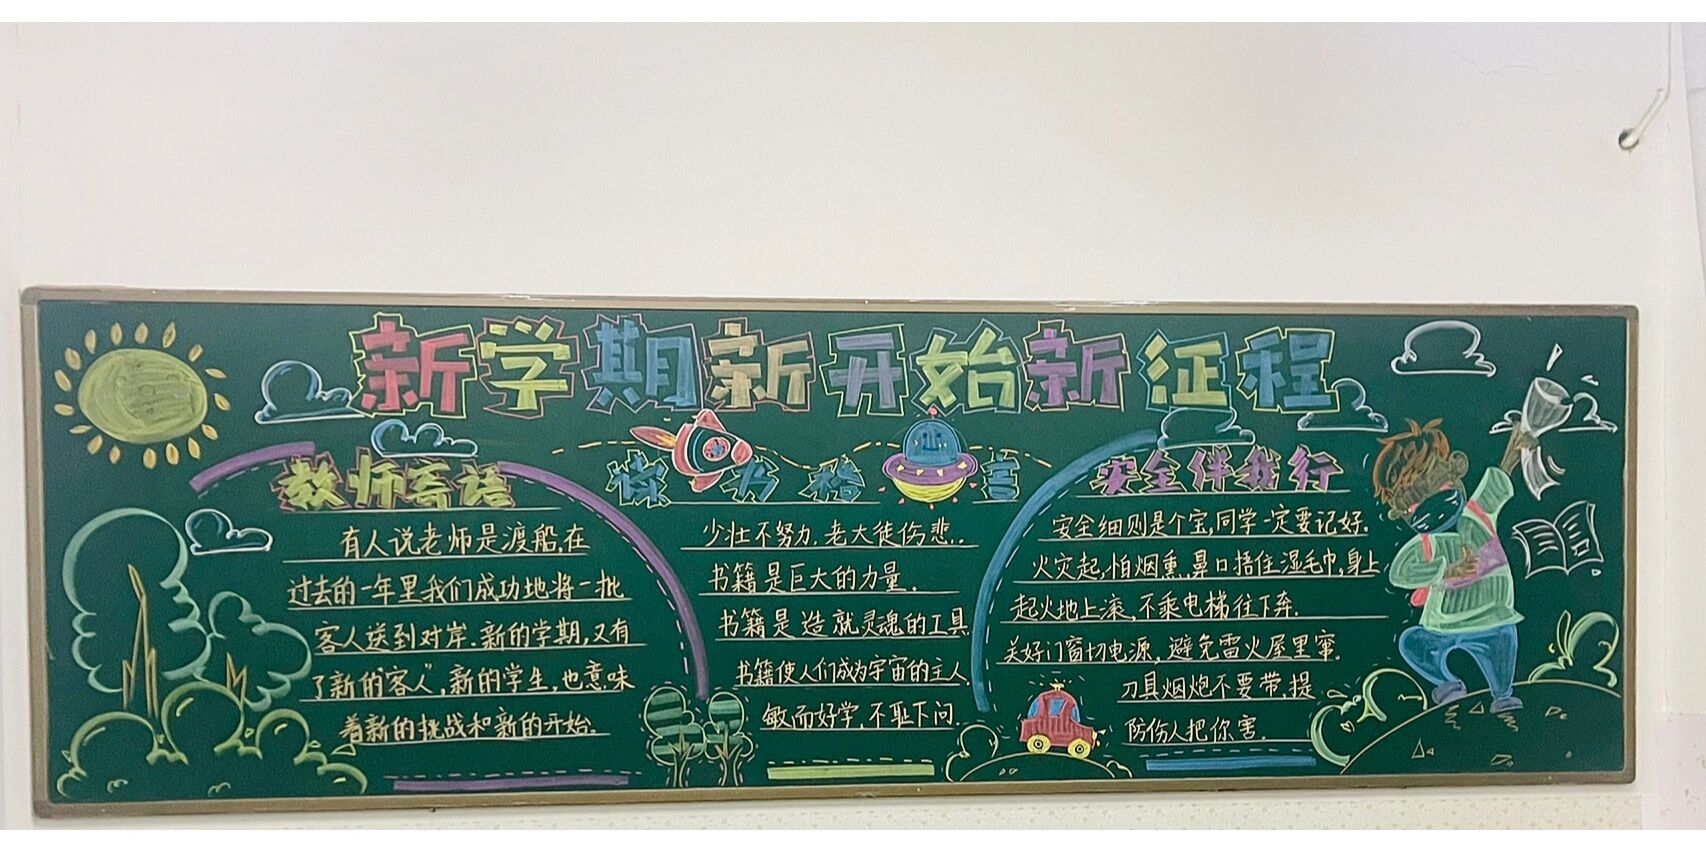 新学期新开始新征程
教师寄语
有人说老师是渡船,在
过去的一年里我们成功地将一批
客人送到对岸.新的学期,又有
了新的"客人",新的学生,也意味
着新的挑战和新的开始.
读书格言
少壮不努力.老大徒伤悲..
书籍是巨大的力量.
书籍是造就灵魂的工具
书籍使人们成为宇宙的主人
敏而好学,不耻下问.
安全伴我行
安全细则是个宝,同学一定要记好.
火灾起,怕烟熏,鼻口捂住湿毛巾,身上
起火地上滚,不乘电梯往下奔.
关好门窗切电源,避免雷火屋里窜.
刀具烟炮不要带,提
防伤人把你害.